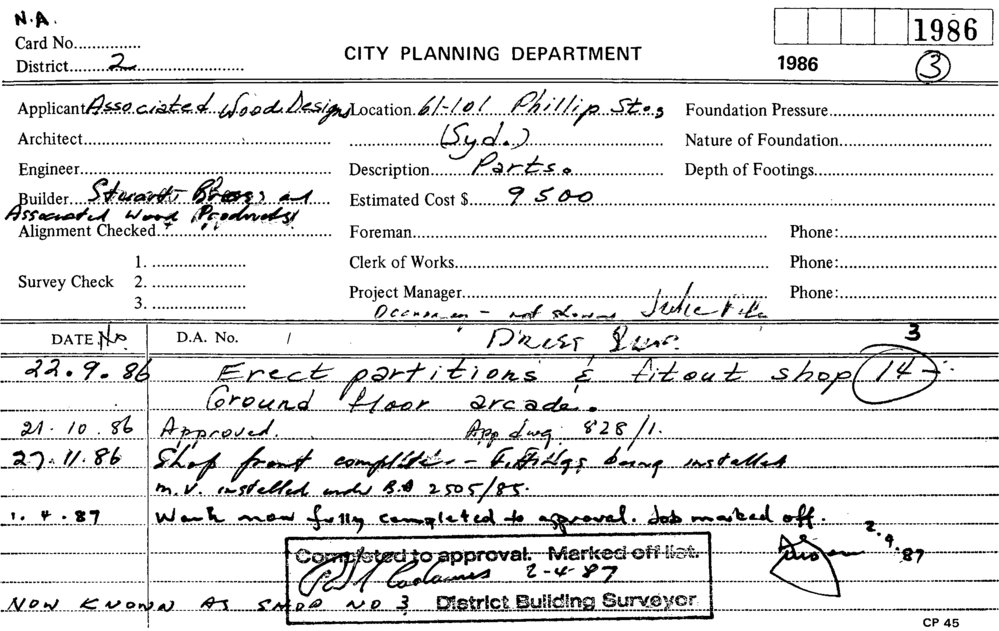 N.A.
Card No.
1986
District 2
CITY PLANNING DEPARTMENT
1986
3
Applicant Associated Wood Designs Location 61-101 Phillip St., Foundation Pressure
Architect (Syd.) Nature of Foundation
Engineer Description Parts. Depth of Footings
Builder Stewart and Estimated Cost $ 9500
Associated Wood Products
Alignment Checked Foreman Phone:
1. Clerk of Works Phone:
Survey Check 2.
Project Manager Phone:
3.
not
DATE No. D.A. No. / 3
22.9.86 Erect partitions & fitout shop 14
Ground floor arcade.
21.10.86 Approved. App dwg. 828/1.
27.11.86 Shop front complete - Fittings being installed
m.v. installed under B.A 2505/85.
1.4.87 Work now fully completed to approval. Job marked off.
2.4.87
Completed to approval. Marked off list.
2-4-87
District Building Surveyor
NOW KNOWN AS SHOP NO 3
CP 45